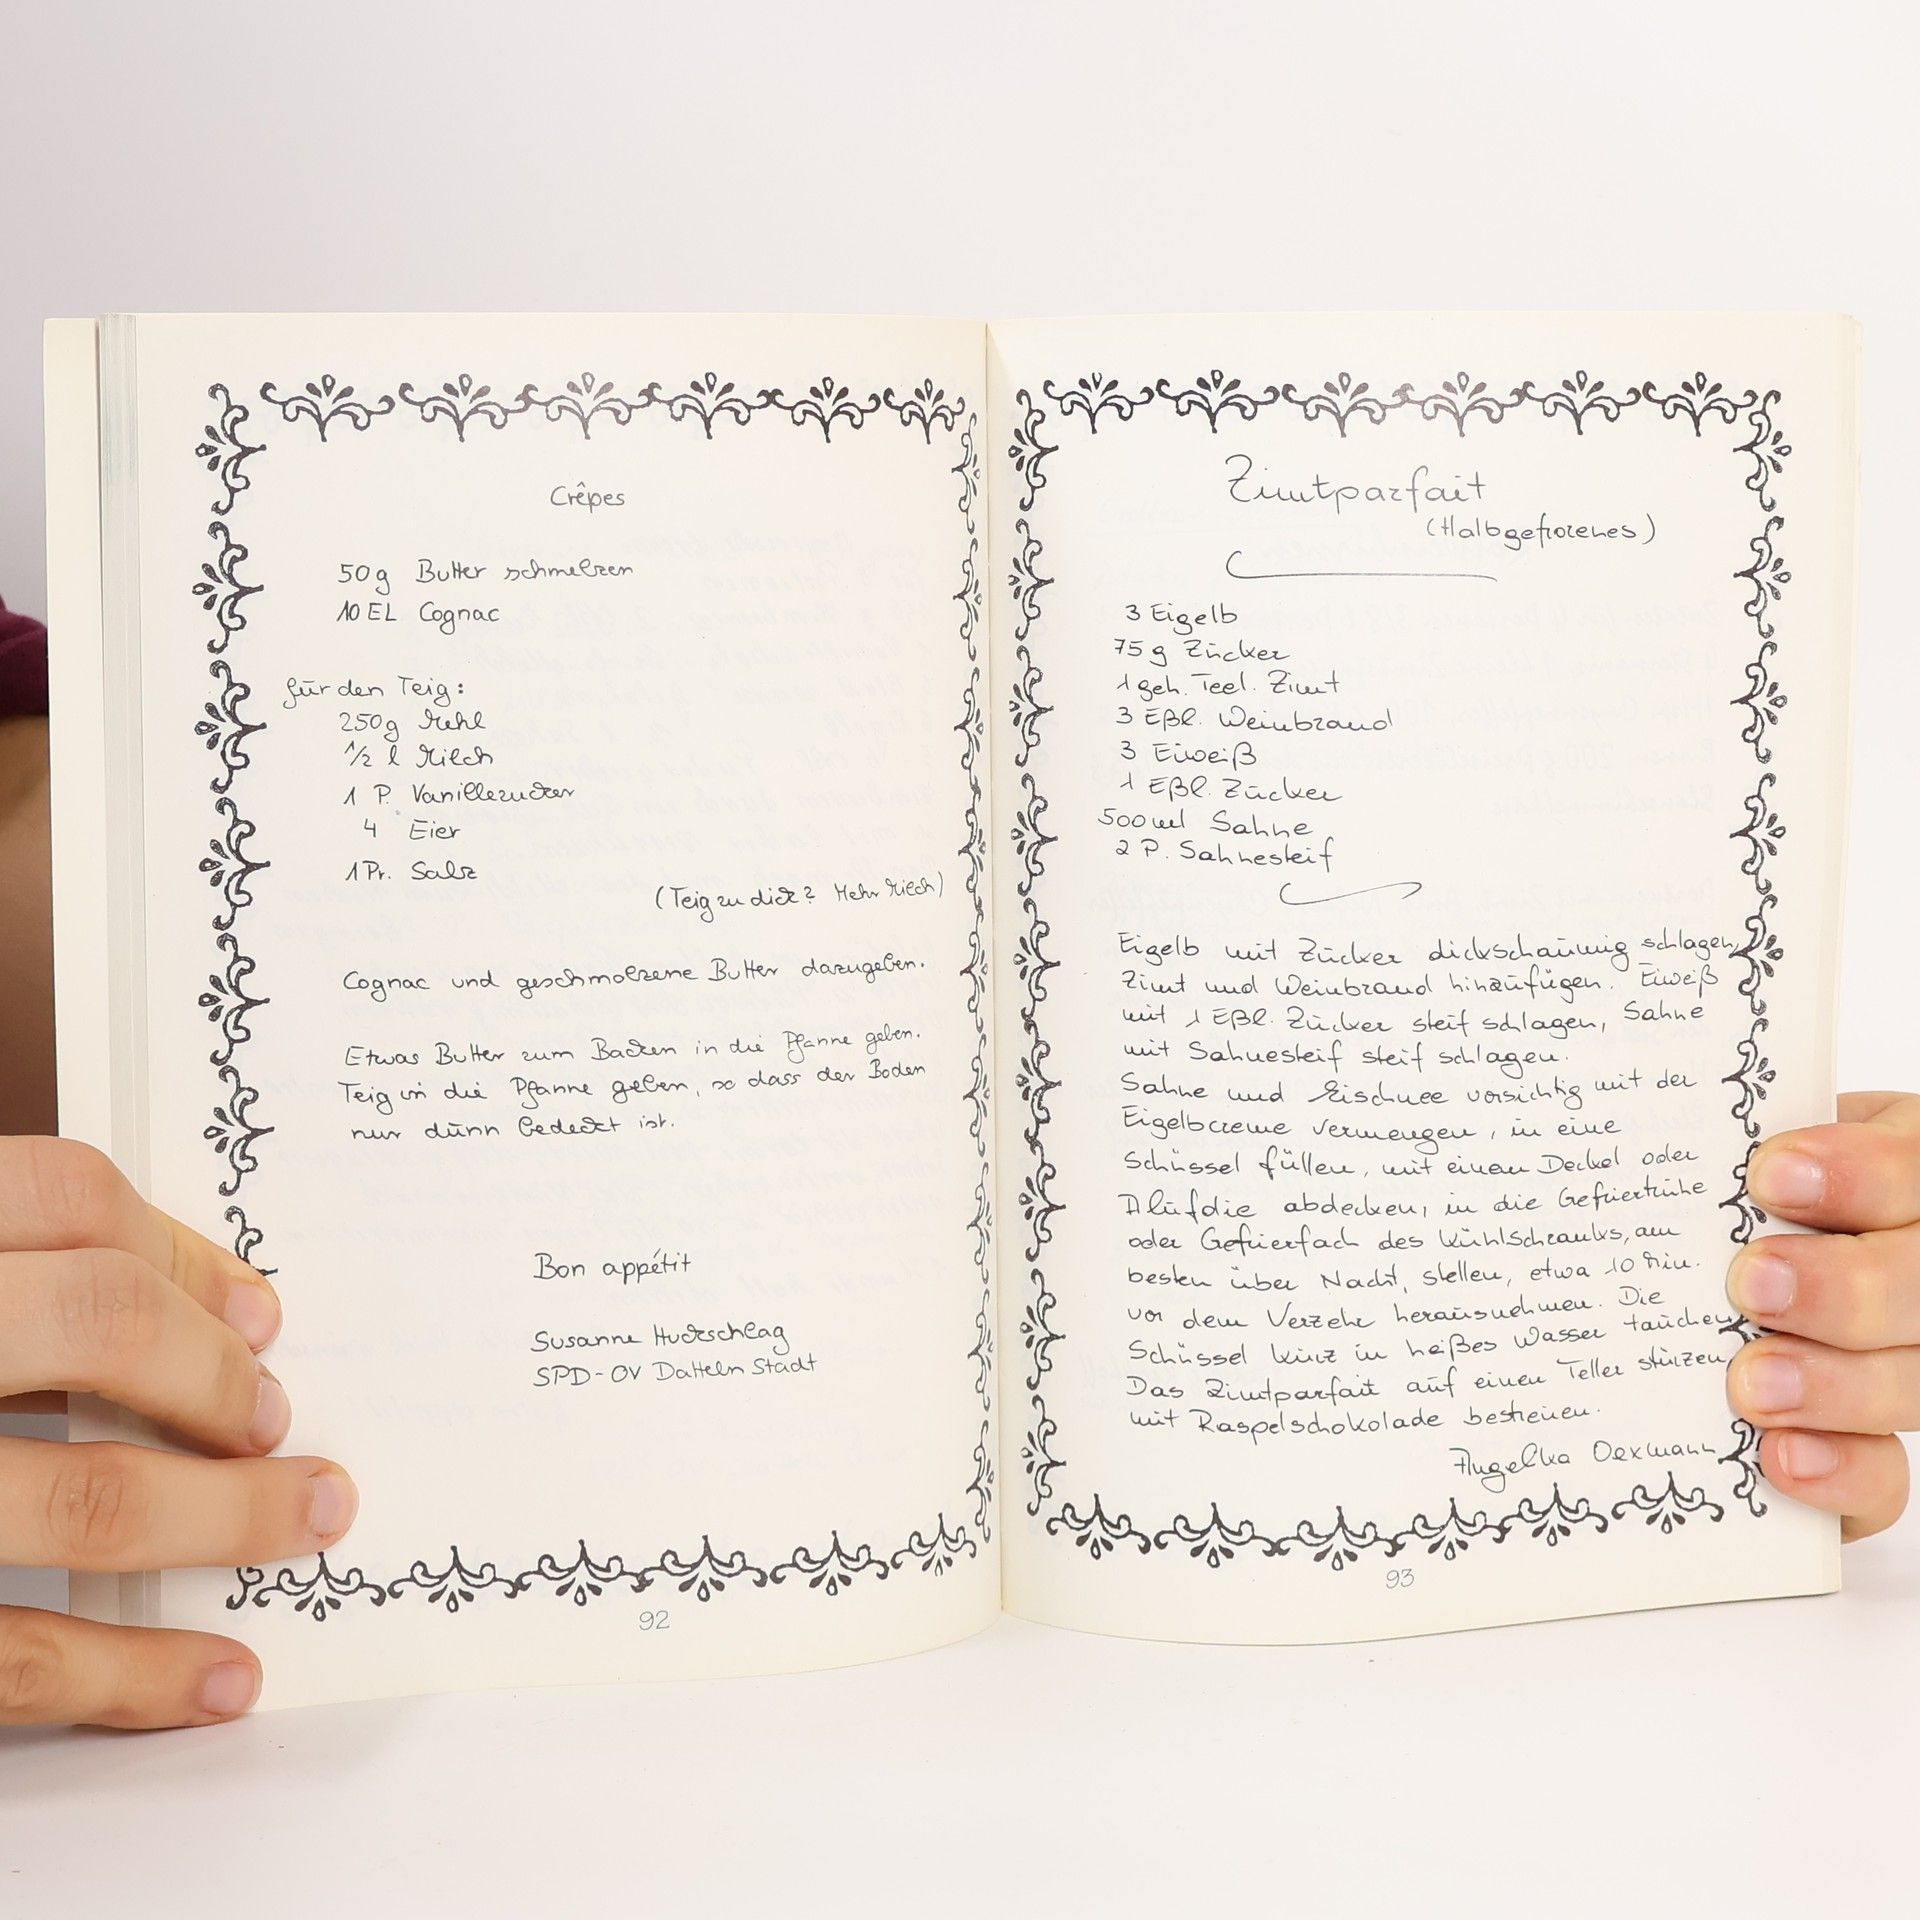 Crêpes
50g Butter schmelzen
10 EL Cognac
für den Teig:
250g Mehl
1/2 l Milch
1 P. Vanillezucker
4 Eier
1 Pr. Salz
(Teig zu dick? Mehr Milch)
Cognac und geschmolzene Butter dazugeben.
Etwas Butter zum Backen in die Pfanne geben.
Teig in die Pfanne geben, so dass der Boden
nur dünn bedeckt ist.
Bon appétit
Susanne Huckschlag
SPD-OV Datteln Stadt
92
Zimtparfait
(Halbgefrorenes)
3 Eigelb
75 g Zucker
1 geh. Teel. Zimt
3 Eßl. Weinbrand
3 Eiweiß
1 Eßl. Zucker
500 ml Sahne
2 P. Sahnesteif
Eigelb mit Zucker dickschaumig schlagen,
Zimt und Weinbrand hinzufügen. Eiweiß
mit 1 Eßl. Zucker steif schlagen, Sahne
mit Sahnesteif steif schlagen.
Sahne und Eischnee vorsichtig mit der
Eigelbcreme vermengen, in eine
Schüssel füllen, mit einem Deckel oder
Alufolie abdecken, in die Gefriertruhe
oder Gefrierfach des Kühlschranks, am
besten über Nacht, stellen, etwa 10 Min.
vor dem Verzehr herausnehmen. Die
Schüssel kurz in heißes Wasser tauchen,
Das Zimtparfait auf einen Teller stürzen,
mit Raspelschokolade bestreuen.
Angelka Oexmann
93